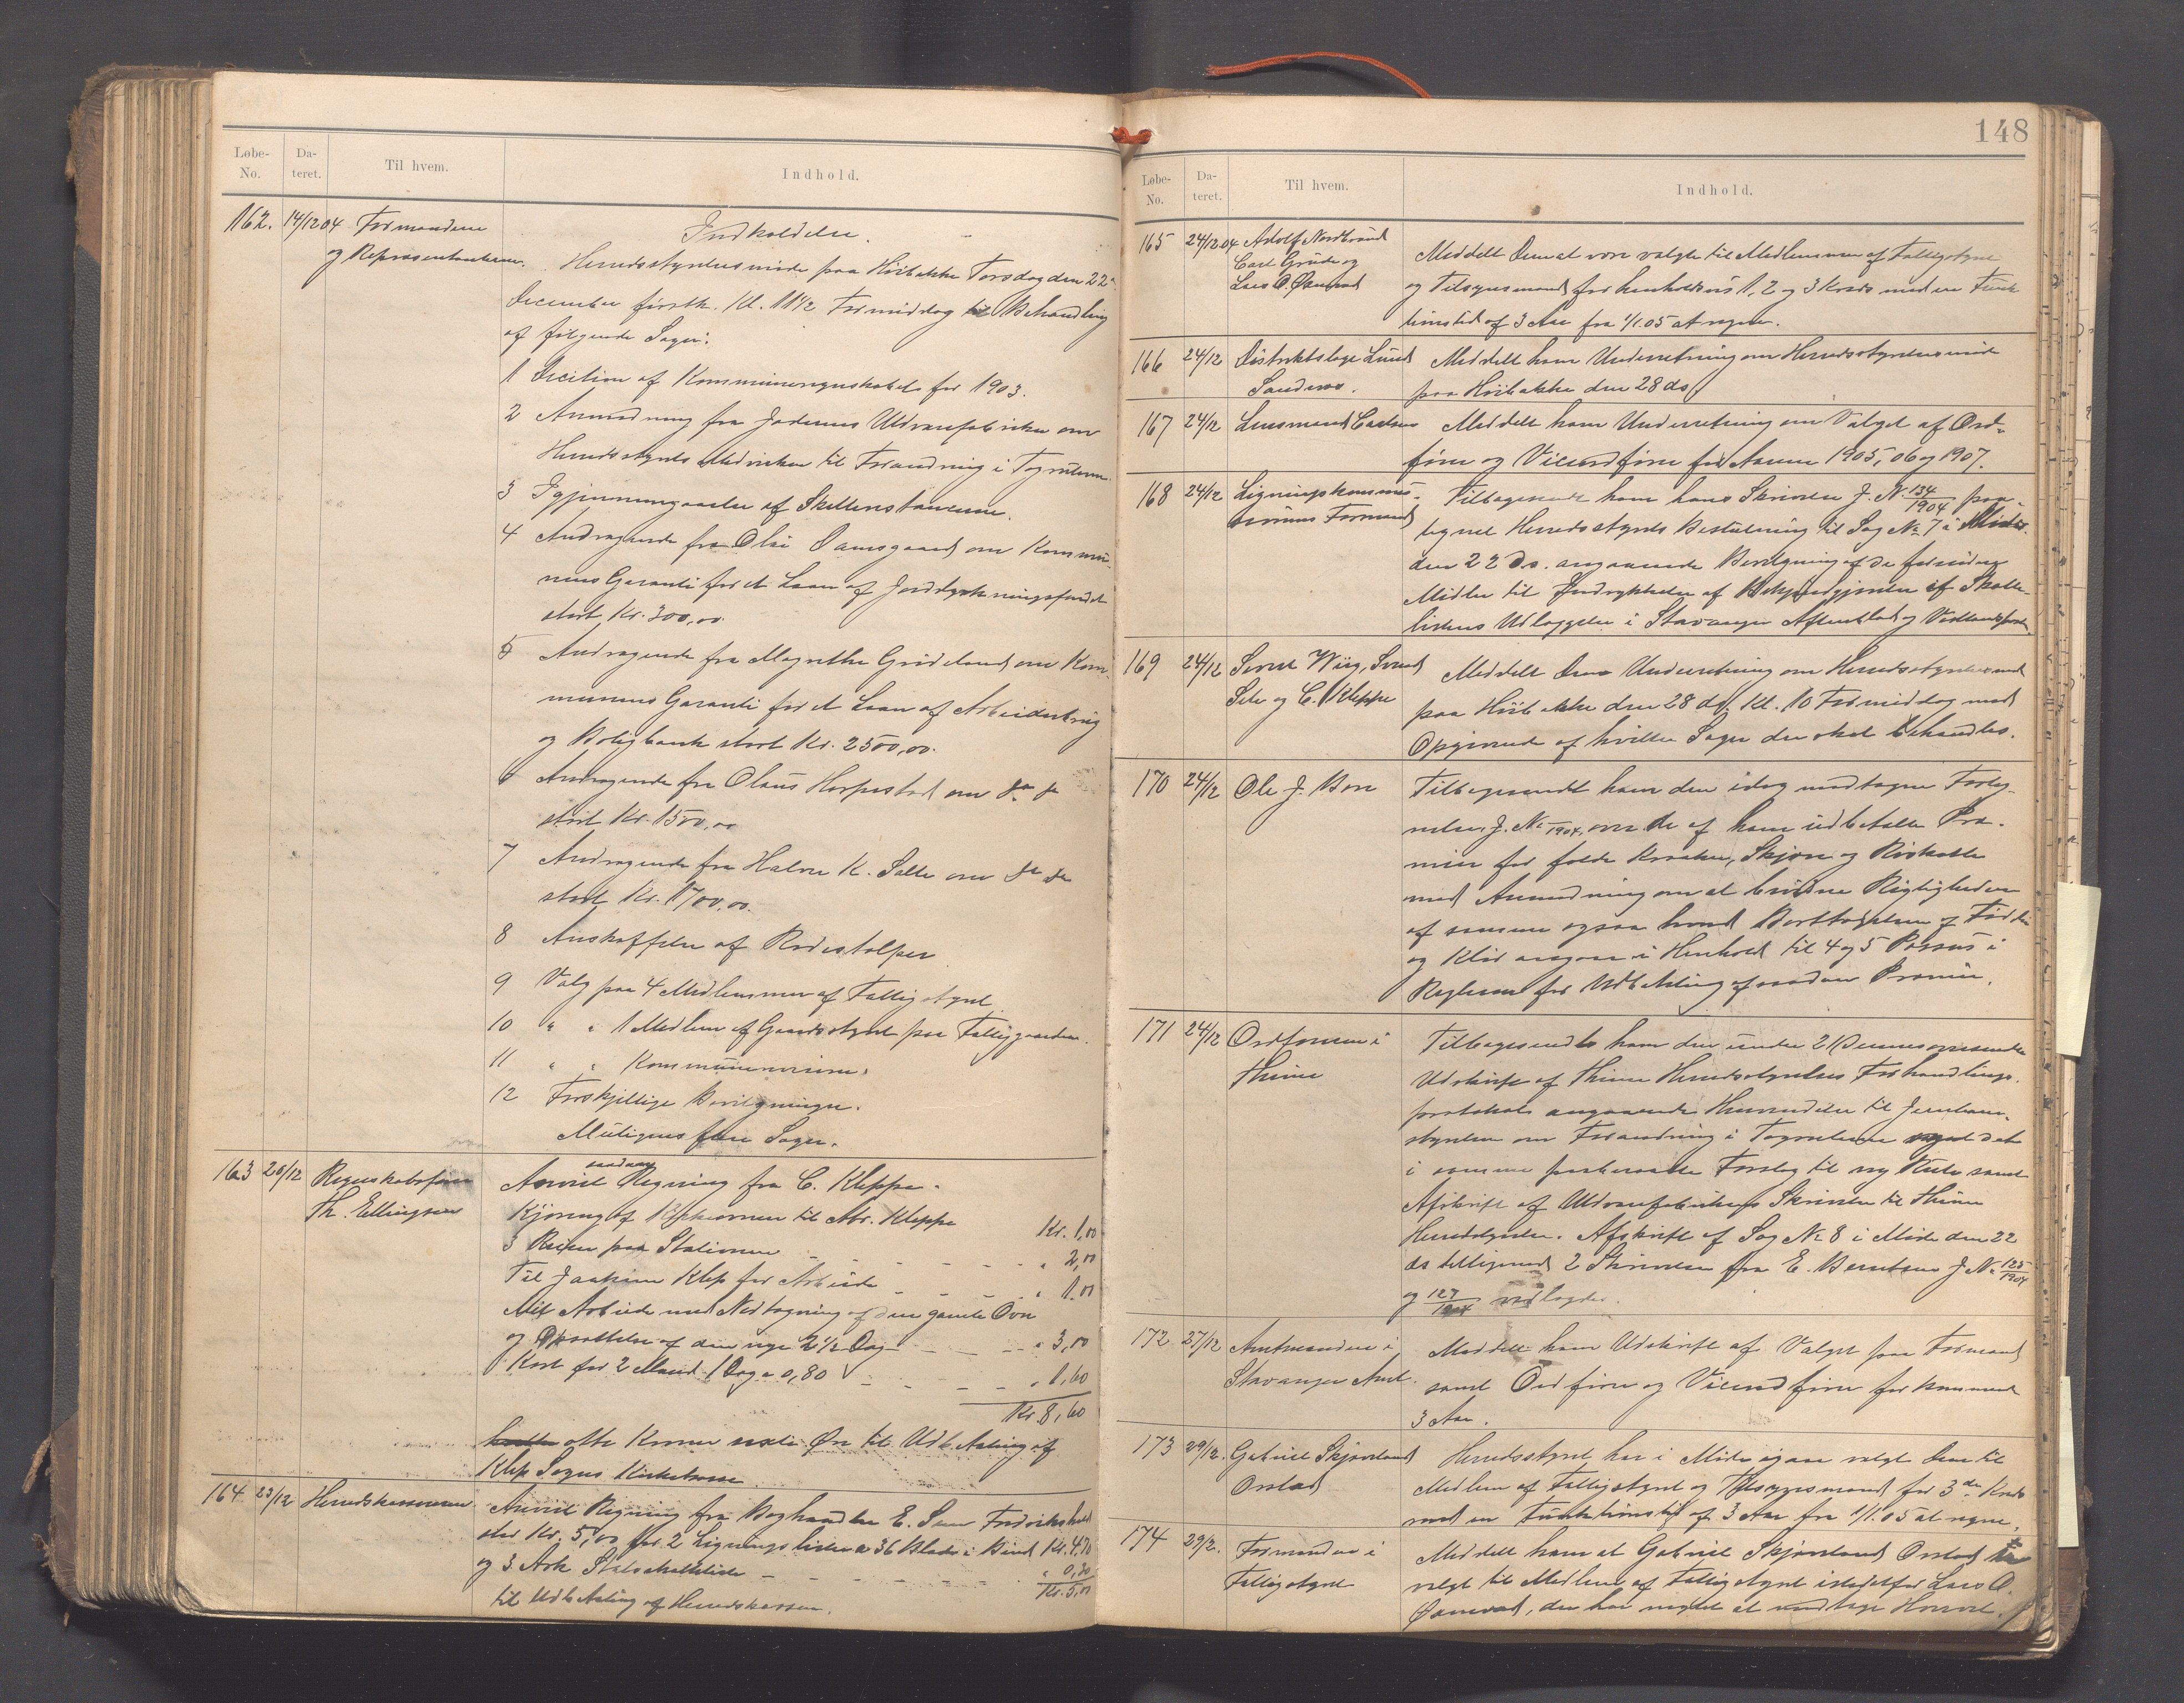 Løbe-No. Da-teret. Til hvem. Indhold.
162. 14/12 04 Formændene Indkaldelse.
og Repræsentanterne. Herredsstyrelsesmøde paa Høibakke Torsdag den 22de
December førstk. Kl. 11 1/2 Formiddag til Behandling
af følgende Sager:
1 Decision af Kommuneregnskabet for 1903.
2 Anmodning fra Jæderens Uldvarefabriker om
Herredsstyrets Medvirken til Forandring i Togruterne.
3 Igjennemgaaelse af Skatterestancerne.
4 Andragende fra Olai Damsgaard om Kommu-
nens Garanti for et Laan af Jorddyrkningsfondet
stort Kr. 300,00.
5 Andragende fra Magrethe Grødeland om Kom-
munens Garanti for et Laan af Arbeiderbrug
og Boligbank stort Kr. 2500,00.
6 Andragende fra Olaus Horpestad om do do
stort Kr. 1500,00
7 Andragende fra Halvor K. Salte om do do
stort Kr. 1700,00.
8 Anskaffelse af Rodestolper
9 Valg paa 4 Medlemmer af Fattigstyret
10 " " 1 Medlem af Gaardsstyret paa Fattiggaarden.
11 " " Kommunerevisor.
12 Forskjellige Bevilgninger.
Muligens flere Sager.
163 20/12 Regnskabsfører Anvist saadan Regning fra C. Kleppe.
Th. Ellingsen Kjøring af Kirkeovnen til Abr. Kleppe Kr. 1,00
3 Reiser paa Stationen " 2,00
Til Joakim Klep for Arbeide " 1.00
Mit Arbeide med Nedtagning af den gamle Ovn
og Opsættelse af den nye 2 1/2 Dag " 3,00
Kost for 2 Mand 1 Dag a 0,80 " 1,60
Kr. 8,60
otte Kroner sexti Øre til Udbetaling af
Klep Sogns Kirkekasse
164 23/12 Herredskassereren Anvist Regning fra Boghandler E. Sem Fredrikshald
stor Kr. 5,00 for 2 Ligningslister a 36 Blade i Bind Kr. 4,70
og 3 Ark Statsskatteliste " 0,30
Kr. 5,00
til Udbetaling af Herredskassen.
148
Løbe-No. Da-teret. Til hvem. Indhold.
165 24/12 04 Adolf Nordbraad
Carl Grude og Meddelt Dem at være valgte til Medlemmer af Fattigstyret
Lars O. og Tilsynsmænd for henholdsvis 1, 2 og 3 Kreds med en Funk-
tionstid af 3 Aar fra 1/1.05 at regne.
166 24/12 Distriktslæge Lund Meddelt ham Underretning om Herredsstyrelsesmøde
Sandnes. paa Høibakke den 28 ds.
167 24/12 Lensmand Carlsen Meddelt ham Underretning om Valget af Ord-
fører og Viceordfører for Aarene 1905, 06 og 1907.
168 24/12 Ligningskommis- Tilbagesendt ham hans Skrivelse J. No 134/1904 paa-
sionens Formand tegnet Herredsstyrets Beslutning til Sag No 7 i Møde
den 22 ds. angaaende Bevilgning af de fornødne
Midler til Indrykkelse af Bekjendtgjørelse af Skatte-
listens Udlæggelse i Stavanger Aftenblad og Vestlandsposten.
169 24/12 Sivert Wiig, Svend Meddelt Dem Underretning om Herredsstyrelsesmøde
Sele og C. Kleppe paa Høibakke den 28 ds. Kl. 10 Formiddag med
Opgivende af hvilke Sager der skal behandles.
170 24/12 Ole J. Bore Tilbagesendt ham den idag modtagne Forteg-
nelse, J. No /1904, over de af ham udbetalte Præ-
mier for fældte Kraaker, Skjære og Røiskatte
med Anmodning om at bevidne Rigtigheden
af samme ogsaa hvad Borttagelsen af Fødder
og Klør angaar i Henhold til 4 og 5 Passus i
Reglerne for Udbetaling af saadan Præmie.
171 24/12 Ordføreren i Tilbagesendt ham den under 21 Dennes oversendte
Thime Udskrift af Thime Herredsstyrelses Forhandlings-
protokol angaaende Henvendelse til Jernbane-
styrelsen om Forandring i Togruterne det
i samme Forslag til ny Rute samt
Afskrift af Uldvarefabrikens Skrivelse til Thime
Herredsstyrelse. Afskrift af Sag No 8 i Møde den 22
ds tilligemed 2 Skrivelser fra E. Berntsen J. No 125/1904
og 127/1904 vedlagdes.
172 27/12 Amtmanden i Meddelt ham Udskrift af Valget paa Formænd
Stavanger Amt. samt Ordfører og Viceordfører for kommende
3 Aar.
173 29/12. Gabriel Skjæveland Herredsstyret har i Møde igaar valgt Dem til
Orstad Medlem af Fattigstyret og Tilsynsmand for 3die Kreds
med en Funktionstid af 3 Aar fra 1/1.05 at regne.
174 29/12. Formanden i Meddelt ham at Gabriel Skjæveland Orstad
Fattigstyret valgt til Medlem af Fattigstyret istedetfor Lars O.
der har negtet at modtage Hvervet.